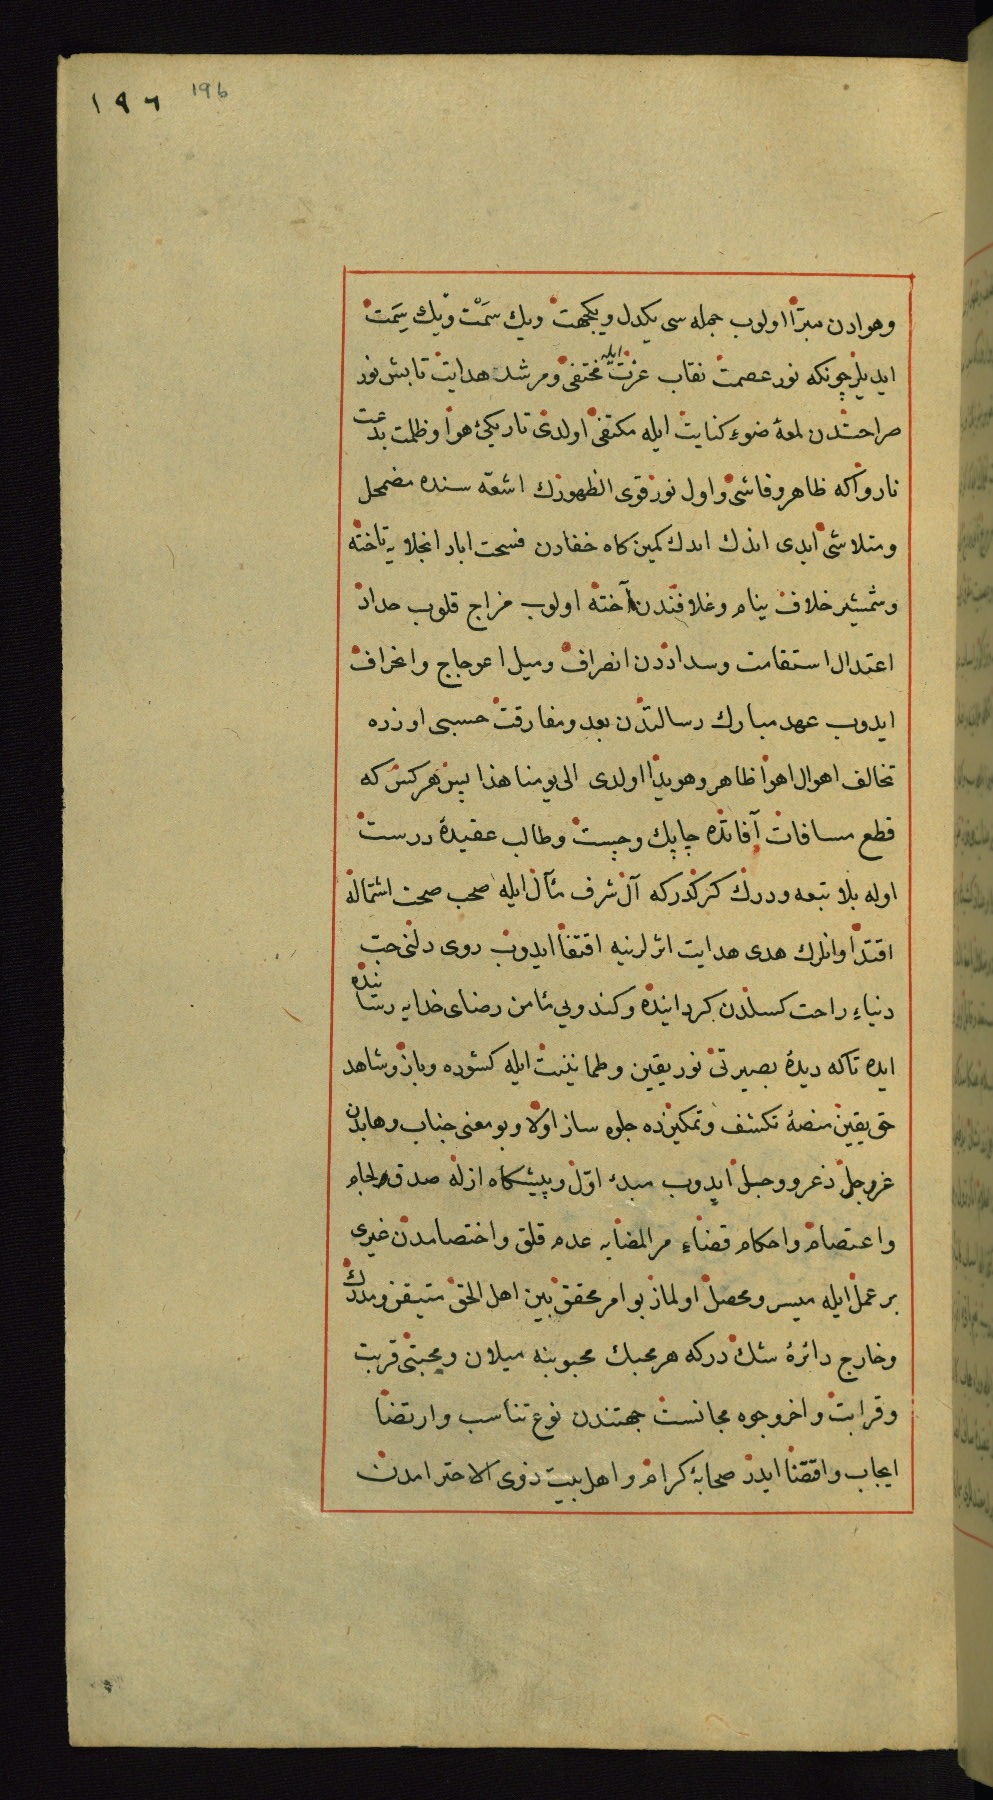 ١٩٦ 196
وهوادن مبرّا اولوب جمله سی یکدل ویکجهت ویك سَمْت ویك سِمَت
ایدیلر چونکه نور عصمت نقاب عزت ایله مختفی ومرشد هدایت تابش نور
صراحتدن لمعۀ ضوء کنایت ایله مکتفی اولدی تاریکئ هوا وظلمت بدعت
ناروا که ظاهر وفاشی واول نور قوی الظهورك اشعّه سنده مضمحل
ومتلاشی ایدی اندك اندك کمین کاه خفادن فسحت اباد انجلایه تاخته
وشمشیر خلاف نیام وغلافندن آخته اولوب مزاج قلوب حداد
اعتدال استقامت وسداددن انصراف ومیل اعوجاج وانحراف
ایدوب عهد مبارك رسالتدن بعد ومفارقت حسبی اوزره
تخالف اهوال اهوا ظاهر وهویدا اولدی الی یومنا هذا پس هر کس که
قطع مسافات آفاتده چاپك وچست وطالب عقیدۀ درست
اوله بلا تبعه ودرك کرکدرکه آل شرف مآل ایله صحب صحت اشتماله
اقتدا وانلرك هدی هدایت اثرلرینه اقتفا ایدوب روی دلنی حبّ
دنیاء راحت کسلدن کرداننده وکندویی مأمن رضای خدایه رساننده
ایده تاکه دیدۀ بصیرتی نور یقین وطمانینت ایله کشوده وباز وشاهد
حق یقین منصۀ تکشف وتمکینده جلوه ساز اولا وبو معنی جناب وهابدن
عز وجل ذعر ووجل ایدوب مبدء اوّل وپیشکاه ازله صدق لجام
واعتصام واحکام قضاء مر المضایه عدم قلق واختصامدن غیری
بر عمل ایله میسر ومحصل اولماز بو امر محقق بین اهل الحق متیقن ومدرك
وخارج دائرۀ شك درکه هر محبك محبوبنه میلان ومحبتی قربت
وقرابت واخر وجوه مجانست جهتندن نوع تناسب وارتضا
ایجاب واقتضا ایدر صحابۀ کرام واهل بیت ذوی الاحترامدن